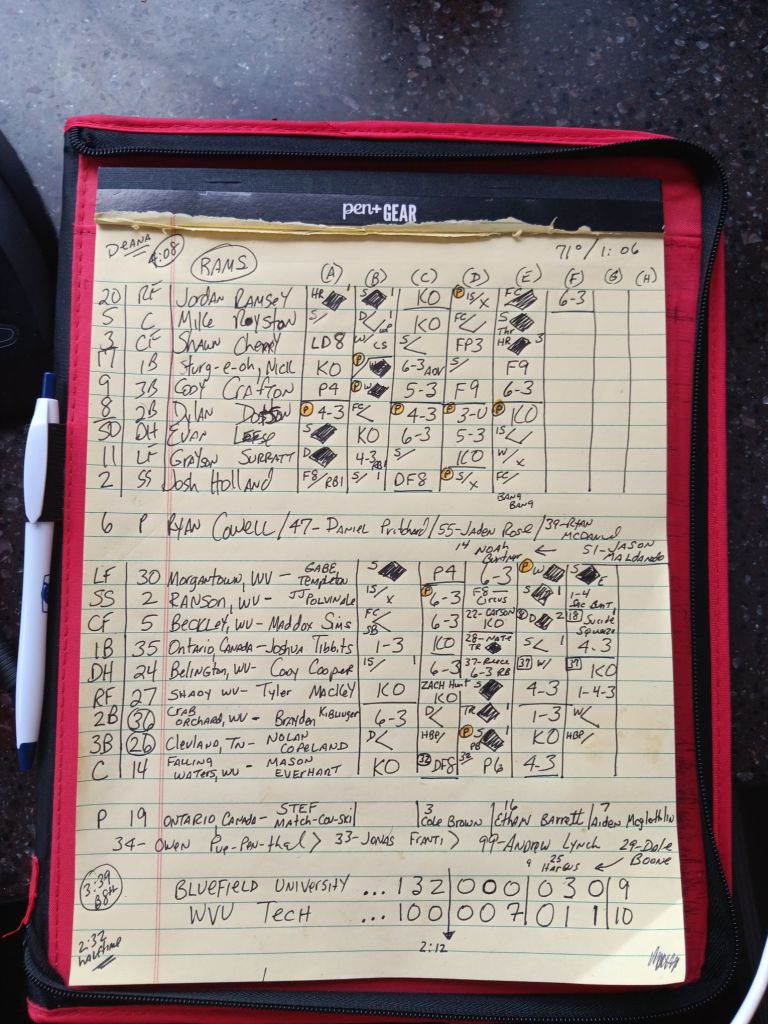 pen+GEAR
DEANA 4:08 RAMS 71° / 1:06
(A) (B) (C) (D) (E) (F) (G) (H)
20 RF Jordan RAMSEY HR 1 S 1 KO P 1S/x FC 6-3
5 C Mike Royston S/ D/ WP KO FC/ S Thr
3 CF SHAWN Cherry LD8 W/ CS S/ FP3 HR 3
17 1B Sturg-e-oh, Nick KO P/W 6-3 ADV S/ F9
9 3B Cody Crafton P4 P W 5-3 F9 6-3
8 2B Dylan Dotson P 4-3 FC P 4-3 P 3-U P KO
50 DH EVAN Leese S KO 6-3 5-3 1S/
11 LF GRAYSON SURRATT D 4-3 RBI S/ KO W/x
2 SS Josh Holland F8/RBI S/ 1 DF8 P S/x FC/
BANG BANG
6 P RYAN Cowell / 47- DANIEL Pritchard / 55-Jaden Rose / 39-RYAN McDANIEL
14 NOAH ← 51-JASON MALDANADO
LF 30 Morgantown, WV - GABE Templeton S P4 6-3 P W S E
SS 2 RANSON, WV - JJ POLVINALE 1S/x P 6-3 F8 CIRCUS S 1 1-4 SAC BUNT
CF 5 BECKLEY, WV - Maddox Sins FC SB 6-3 22-CARSON KO D 2 18 Suicide Squeeze
1B 35 Ontario, CANADA - Joshua Tibbits 1-3 KO 28-NATE TR S 1 4-3
DH 24 Belington, WV - Cody Cooper 1S/ 1 6-3 37-REECE 6-3 RB 37 W/ 37 KO
RF 27 SHADY WV - Tyler Mackey KO ZACH Hunt KO S 4-3 1-4-3
2B 36 CRAB ORCHARD, WV - Brayden Kiblinger 6-3 D/ TR 1 1-3 W/
3B 26 Clevland, TN - NOLAN COPELAND D/ HBP/ P S PB KO HBP/
C 14 FALLING WATERS, WV - MASON EVERHART KO 32 DF8 32 P6 4-3
P 19 ONTARIO, CANADA - STEF Match-cov-ski | 3 Cole Brown | 16 Ethan Barrett | 7 Aiden Mcglothlin
34- OWEN Pue-Pen-thal > 33-JONAS FRANTI > 99-Andrew Lynch 29-Dale BOONE
9 25 HARGUS ←
3:39 B8th BLUEFIELD UNIVERSITY ... 132 000 030 9
WVU TECH ... 100 007 011 10
2:32 halftime 2:12